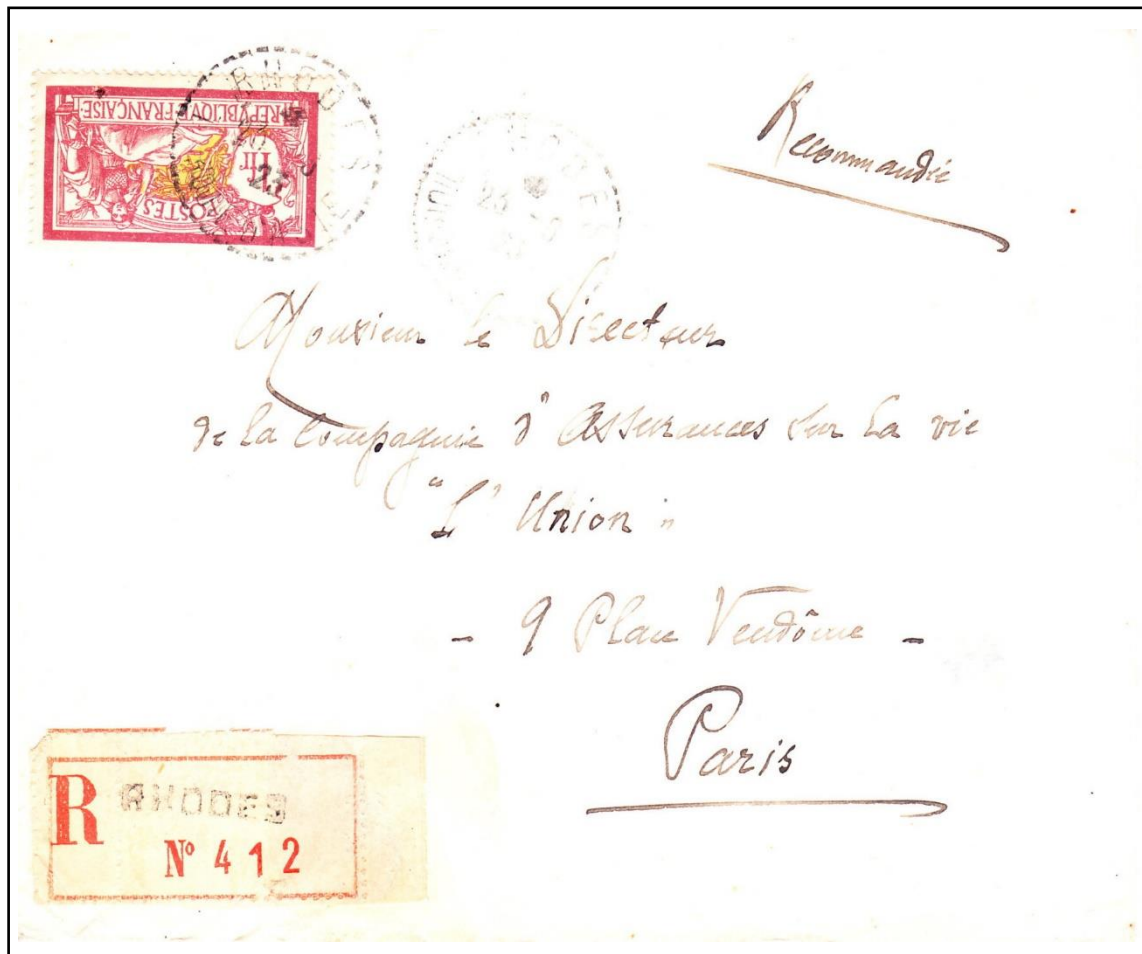 REPUBLIQUE FRANÇAISE
1Fr
POSTES
RHODES
23
23
Recommandée
Monsieur le Directeur
de la Compagnie d'Assurances sur la vie
"L'Union"
- 9 Place Vendôme -
Paris
R RHODES
Nº 412